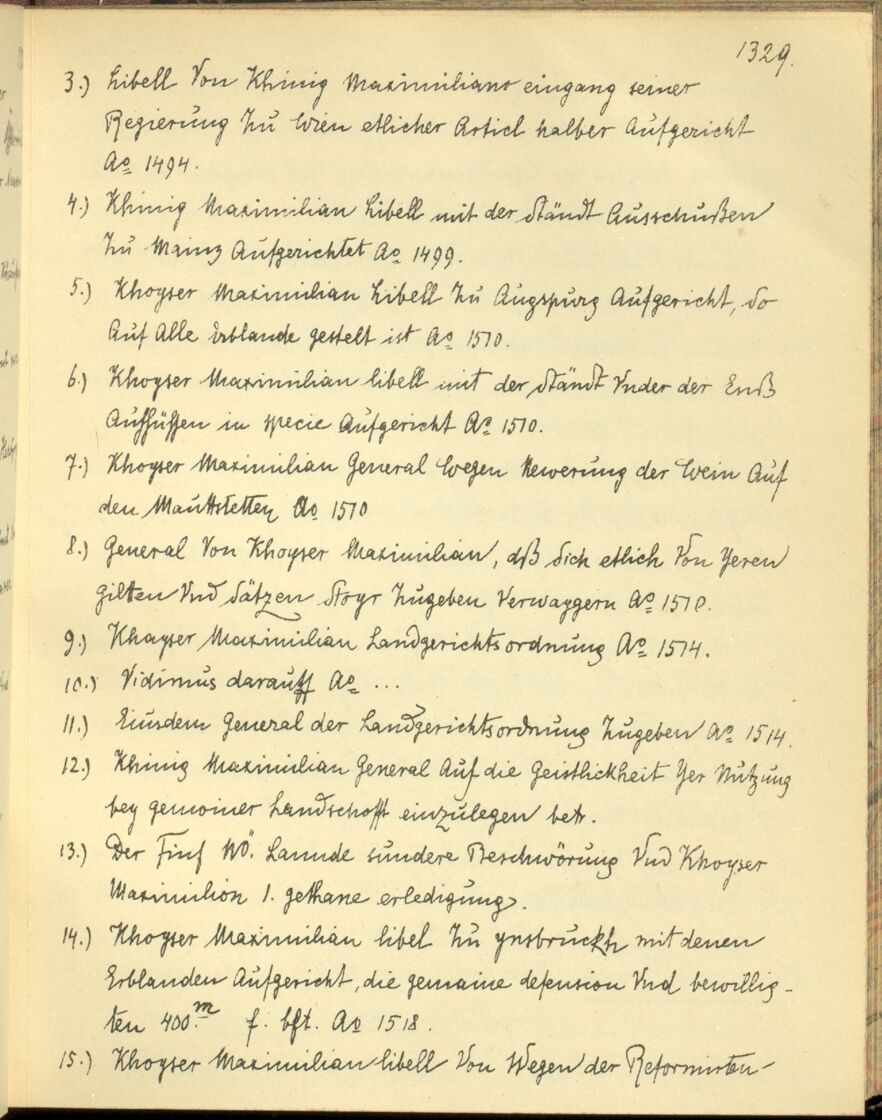 1329.
3.) Libell Von Khinig Maximiliano eingang seiner
Regierung Zu Wien etlicher Articl halber Aufgericht
Ao 1494.
4.) Khinig Maximilian Libell mit der Ständt Ausschußen
Zu Mainz Aufgerichtet Ao 1499.
5.) Khayser Maximilian Libell Zu Augspurg Aufgericht, So
Auf Alle Erblande gestelt ist Ao 1510.
6.) Khayser Maximilian libell mit der Ständt Vnder der Enß
Außschüssen in specie Aufgericht Ao 1510.
7.) Khayser Maximilian General Wegen Newerung der Wein Auf
den Mauttstetten Ao 1510
8.) General Von Khayser Maximilian, dß Sich etlich Von Yeren
gilten Vnd Sätzen Stayr Zugeben Verwaygern Ao 1510.
9.) Khayser Maximilian Landgerichtsordnung Ao 1514.
10.) Vidimus darauff Ao ...
11.) Eiusdem General der Landgerichtsordnung Zugeben Ao 1514.
12.) Khinig Maximilian General Auf die Geistlickheit Yer Nutzung
bey gemainer Landschafft einzulegen betr.
13.) Der Finf NÖ. Lannde sundere Beschwörung Vnd Khayser
Maximilian 1. gethane erledigung.
14.) Khayser Maximilian libel Zu ynsbruckh mit denen
Erblanden Aufgericht, die gemaine defension Vnd bewillig-
ten 400.m f. bft. Ao 1518.
15.) Khayser Maximilian libell Von Wegen der Reformirten-